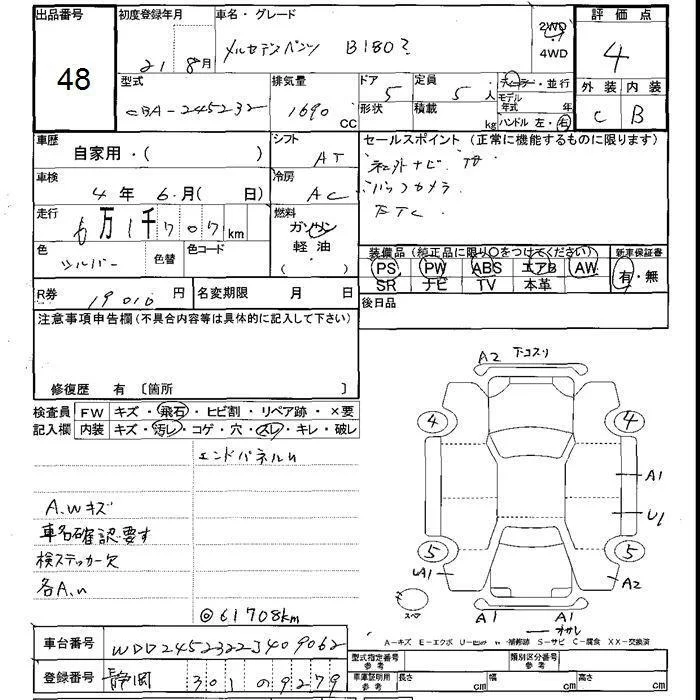 出品番号 初度登録年月 車名・グレード 評価点
48 21 8月 メルセデスベンツ B180 2WD 4WD 4
型式 排気量 ドア 定員 ディーラー・並行 外装 内装
CBA-245232 1690 CC 5 5 モデル年式 年 C B
形状 積載 kg ハンドル 左・右
車歴 シフト セールスポイント (正常に機能するものに限ります)
自家用・( ) AT 社外ナビ
車検 冷房 バックカメラ
4年 6月( 日) AC ETC
走行 燃料
6万1千707km ガソリン
色 色替 色コード 軽油 装備品 (純正品に限り○をつけてください) 新車保証書
シルバー ( ) PS PW ABS エアB AW 有・無
SR ナビ TV 本革
R券 19010円 名変期限 月 日 後日品
注意事項申告欄(不具合内容等は具体的に記入して下さい)
修復歴 有 〔箇所 〕
検査員 FW キズ・飛石・ヒビ割・リペア跡・×要
記入欄 内装 キズ・汚レ・コゲ・穴・スレ・キレ・破レ
エンドパネルU
A.Wキズ
車名確認要す
検ステッカー欠
各A.U
◎61708km
A2 下コスリ
4 4
A1
U1
5 5
UA1 A2
スペア A1 A1
A-キズ E-エクボ W-補修跡 S-サビ C-腐食 XX-交換済
車台番号 WDD2452322J409062 型式指定番号 参考 類別区分番号 参考
登録番号 静岡 301 の 9279 車庫証明用 参考 長さ cm 幅 cm 高さ cm